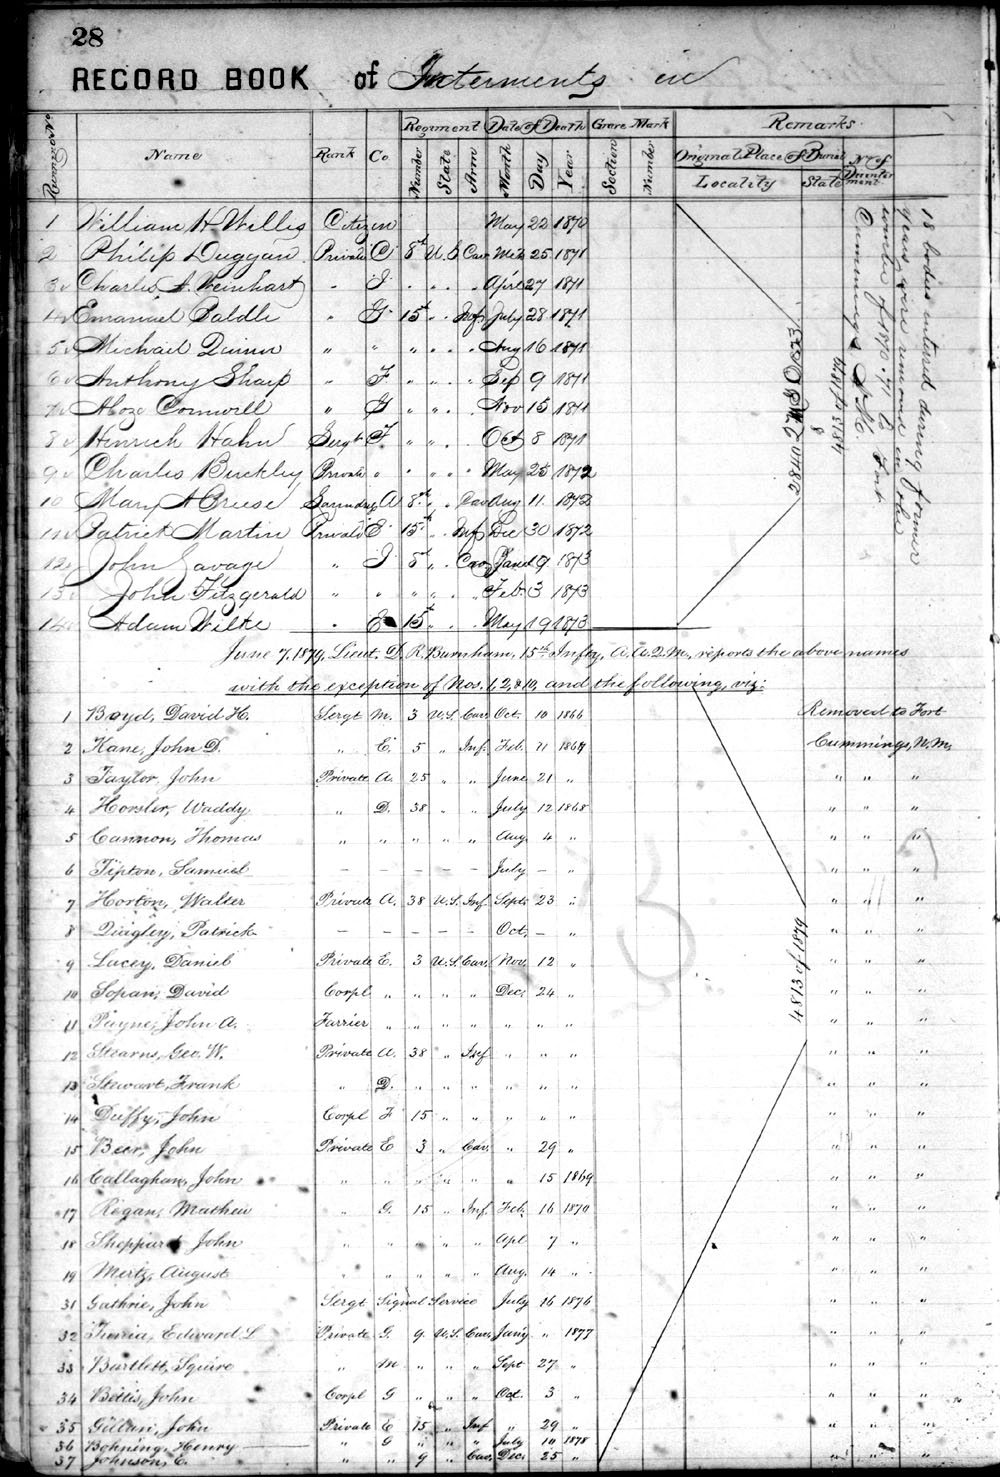 28
RECORD BOOK of Interments in
Running No. Name Rank Co. Regiment Date of Death Grave Mark Remarks
Number State Arm Month Day Year Section Number Original Place of Burial No. of Disinterment
Locality State
1 William H Willis Citizen May 22 1870
2 Philip Duggan Private C 8th U.S Cav 25 1871
3 Charles A. Weinhart " I " " " April 27 1871
4 Emanuel " G 15th " Inf July 28 1871
5 Michael Quinn " " " " " Aug 16 1871
6 Anthony Sharp " F " " " Sep 9 1871
7 Cornwill " G " " " Nov 15 1871
8 Heinrich Hahn Sergt F " " " Oct 8 1871
9 Charles Buckley Private " " " " May 25 1872
10 Mary A Creese Laundry A 8th " Cav Aug 11 1872
11 Patrick Martin Private E 15th " Inf Dec 30 1872
12 John Savage " I 8th " Cav 19 1873
13 John Fitzgerald " " " " " Feb. 3 1873
14 Adam Wilke " E 15th " " May 19 1873
18 bodies interred during former
years were removed in the
winter of 1870-71 to Fort
Cummings N.M.
3184 of 1879
June 7, 1879, Lieut. D. R. Burnham, 15th Infty, A.A.Q.M., reports the above names
with the exception of Nos. 1, 2, & 10, and the following, viz:
1 Boyd, David H. Sergt M. 3 U.S. Cav. Oct. 10 1866 Removed to Fort
2 Kane, John D. " E. 5 " Inf. Feb. 21 1867 Cummings, N.M.
3 Taylor, John Private A. 25 " " June 21 " " " "
4 Horsler, Waddy " D. 38 " " July 12 1868 " " "
5 Cannon, Thomas " " " " " Aug. 4 " " " "
6 Tipton, Samuel – – – – – July – " " " "
7 Horton, Walter Private A. 38 U.S. Inf. Sept. 23 " " " "
8 Quigley, Patrick – – – – – Oct. – " " " "
9 Lacey, Daniel Private E. 3 U.S. Cav. Nov. 12 " " " "
10 Sopan, David Corpl " " " " Dec. 24 " " " "
11 Payne, John A. Farrier " " " " " " " " " "
12 Stearns, Geo. W. Private A. 38 " Inf " " " " " "
13 Stewart, Frank " D. " " " " " " " " "
14 Duffy, John Corpl F 15 " " " " " " " "
15 Beer, John Private E 3 " Cav. " 29 " " " "
16 Callaghan, John " " " " " " 15 1869 " " "
17 Regan, Mathew " G. 15 " Inf Feb. 16 1870 " " "
18 Sheppard John " " " " " Apl 7 " " " "
19 Mertz, August " " " " " Aug. 14 " " " "
31 Guthrie, John Sergt Signal Service July 16 1876 " " "
32 Edward L Private G. 9 U.S. Cav. Jany " 1877 " " "
33 Bartlett, Squire " M " " " Sept 27 " " " "
34 Bettis, John Corpl G " " " Oct. 3 " " " "
35 John Private E 15 " Inf " 29 " " " "
36 Bohning, Henry " G " " " July 10 1878 " " "
37 Johnson, E. " " 9 " Cav. Dec. 25 " " " "
4813 of 1879